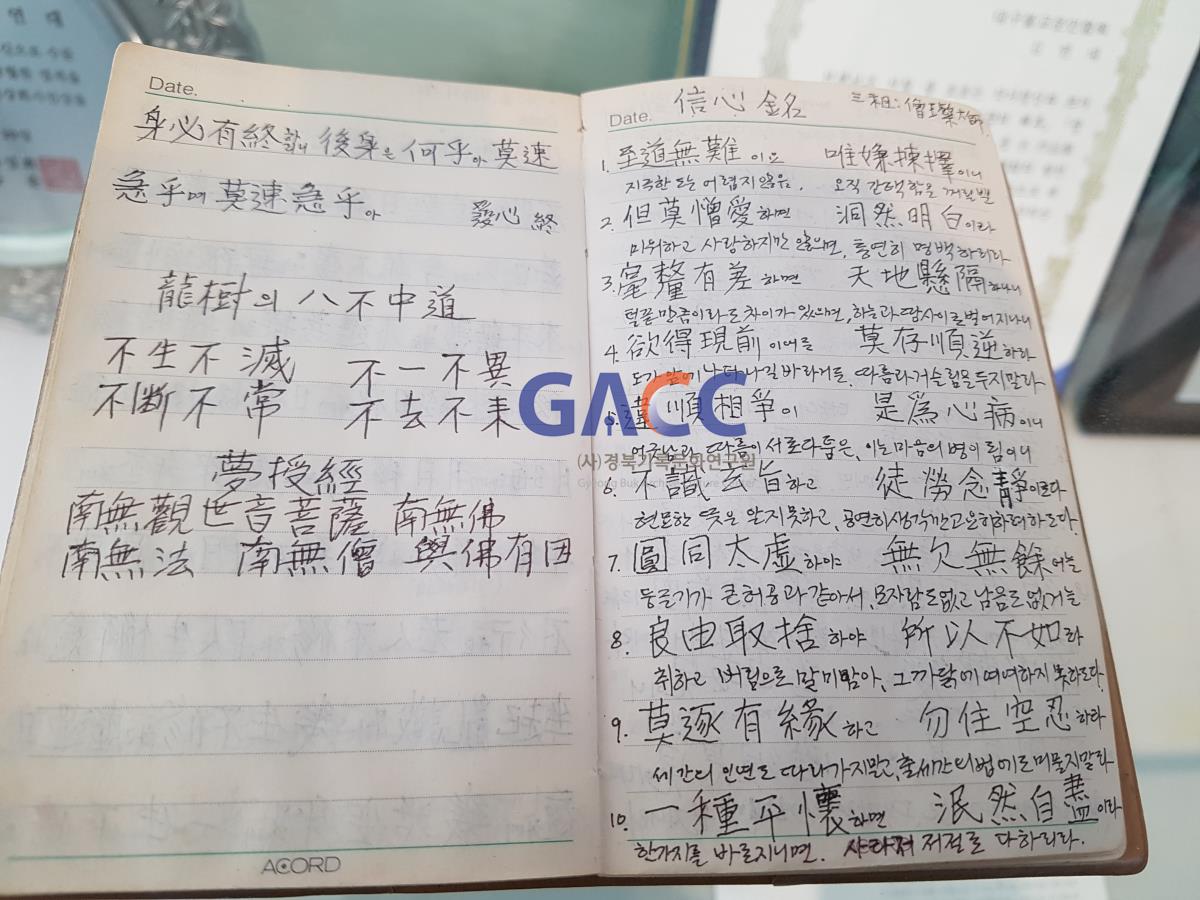 Date.
身必有終하니 後身은 何乎아 莫速
急乎며 莫速急乎아 發心 終
龍樹의 八不中道
不生不滅 不一不異
不斷不常 不去不来
夢授經
南無觀世音菩薩 南無佛
南無法 南無僧 與佛有因
ACORD
Date. 信心銘 三祖: 僧璨大師
1. 至道無難이요 唯嫌揀擇이니
지극한 도는 어렵지 않음, 오직 간택함을 꺼릴 뿐
2. 但莫憎愛하면 洞然明白이라
미워하고 사랑하지만 않으면, 통연히 명백하리라
3. 毫釐有差하면 天地懸隔하나니
털끝만큼이라도 차이가 있으면, 하늘과 땅사이로 벌어지나니
4. 欲得現前이어든 莫存順逆하라
도가 앞에 나타나길 바라거든, 따름과 거슬림을 두지말라
5. 違順相爭이 是爲心病이니
어긋남과 따름이 서로 다툼은, 이는 마음의 병이 됨이니
6. 不識玄旨하고 徒勞念靜이로다
현묘한 뜻은 알지 못하고, 공연히 생각만 고요히 하려 하도다
7. 圓同太虛하야 無欠無餘어늘
둥글기가 큰 허공과 같아서, 모자람도 없고 남음도 없거늘
8. 良由取捨하야 所以不如라
취하고 버림으로 말미암아, 그 까닭에 여여하지 못하도다
9. 莫逐有緣하고 勿住空忍하라
세간의 인연도 따라가지말고, 출세간의 법에도 머물지말라
10. 一種平懷하면 泯然自盡이라
한가지를 바로지니면. 사라져 저절로 다하리라.
GACC
(사)경북기록문화연구원